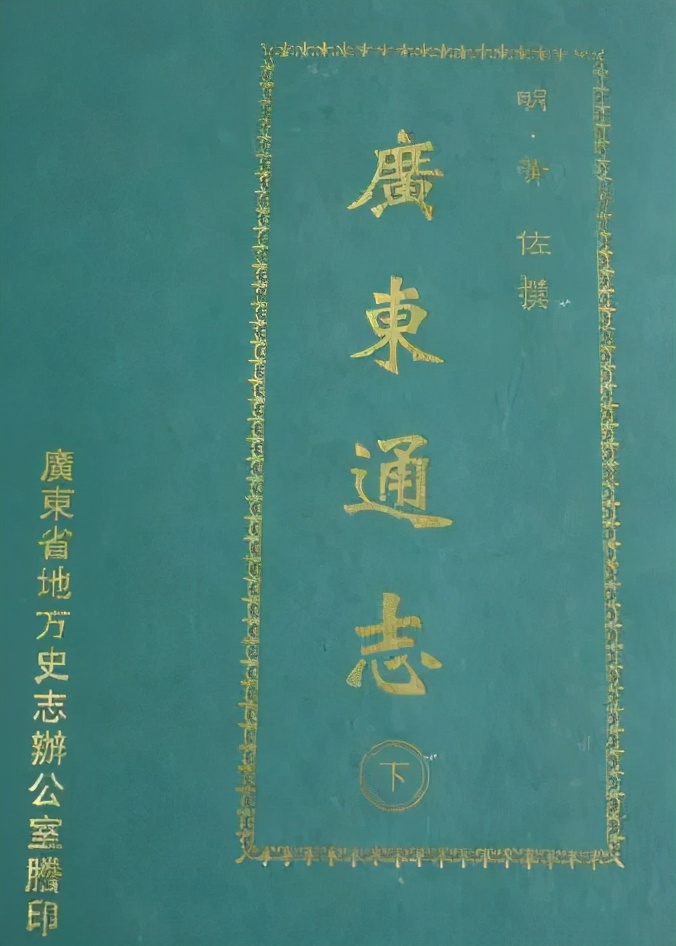 明·黄佐撰
廣東通志
下
廣東省地方史志辦公室謄印